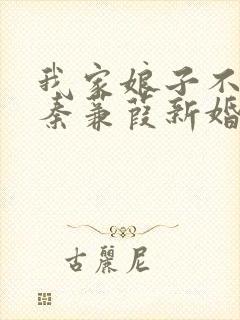 我家娘子不
秦蒹葭新婚
古麗尼